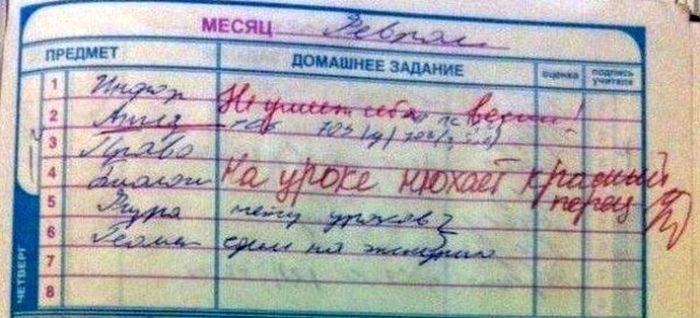 МЕСЯЦ Февраль
ПРЕДМЕТ ДОМАШНЕЕ ЗАДАНИЕ оценка подпись учителя
1 Инфор Не умеет себя вести!
2 Англ 103
3 Право
4 Биологи На уроке нюхает красный
перец
5 Физра нету уроков
6 Геомет
7
8
ЧЕТВЕРГ